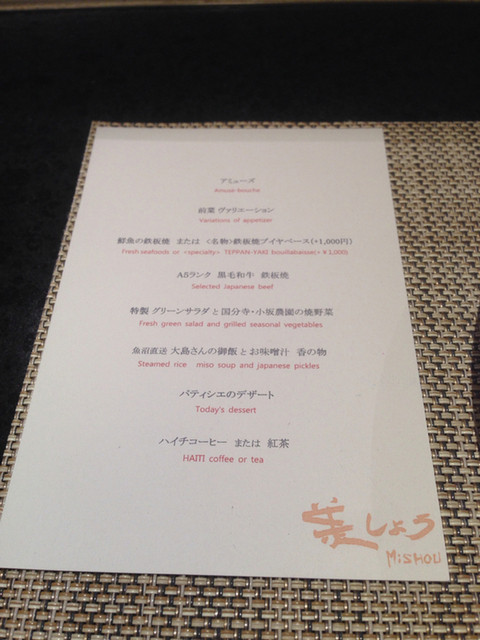 アミューズ
Amuse-bouche
前菜 ヴァリエーション
Variations of appetizer
鮮魚の鉄板焼 または <名物>鉄板焼ブイヤベース(+1,000円)
Fresh seafoods or <specialty> TEPPAN-YAKI bouillabaisse(+¥1,000)
A5ランク 黒毛和牛 鉄板焼
Selected Japanese beef
特製 グリーンサラダと国分寺・小坂農園の焼野菜
Fresh green salad and grilled seasonal vegetables
魚沼直送 大島さんの御飯とお味噌汁 香の物
Steamed rice miso soup and japanese pickles
パティシエのデザート
Today's dessert
ハイチコーヒー または 紅茶
HAITI coffee or tea
美しょう
MiSHOU